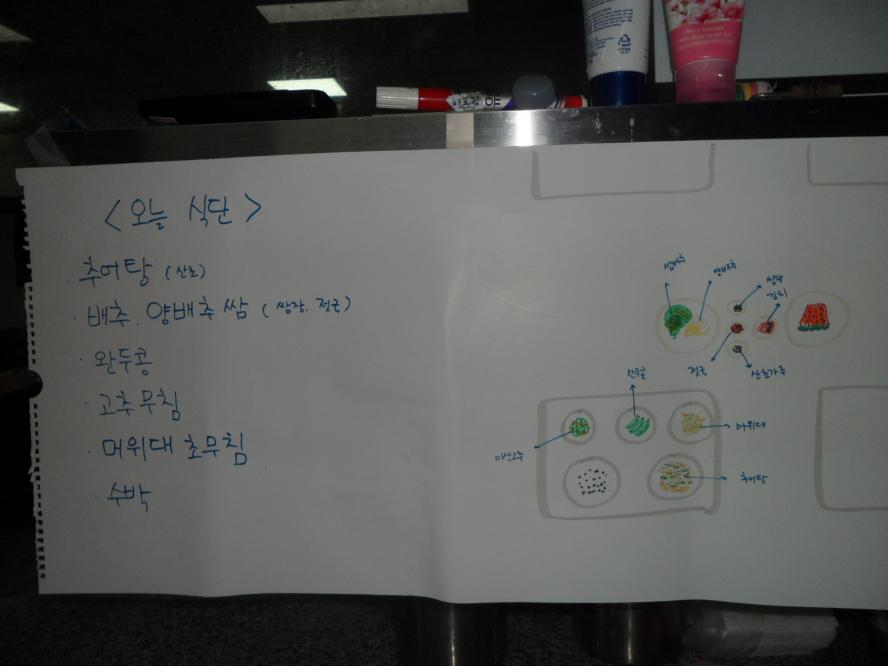 <오늘 식단>
· 추어탕 (산초)
· 배추, 양배추 쌈 (쌈장, 젓국)
· 완두콩
· 고추무침
· 머위대 초무침
· 수박
쌈배추
양배추
쌈장
김치
젓국
산초가루
완두콩
머위대
아삭고추
추어탕